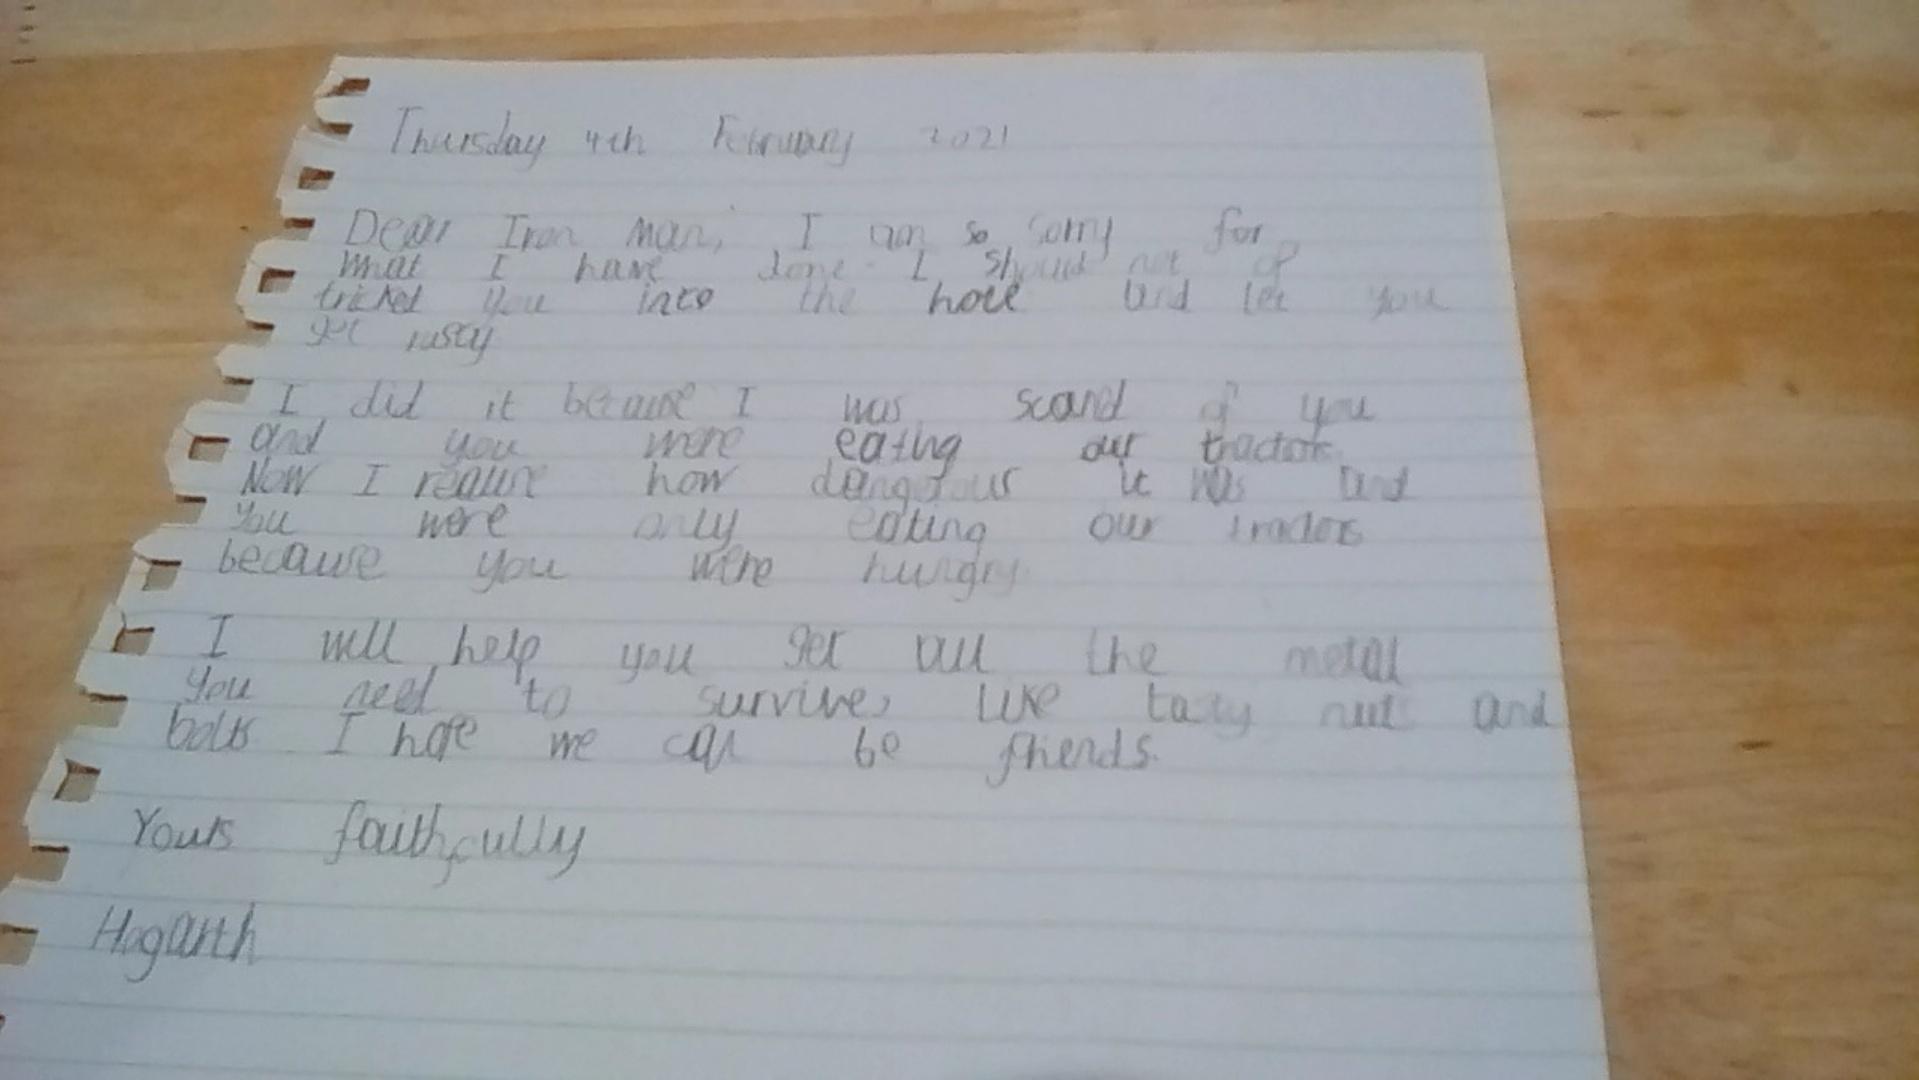 Thursday 4th February 2021
Dear Iron Man, I am so sorry for
what I have done. I should not of
tricked you into the hole and let you
get rusty
I did it because I was scared of you
and you were eating our tractors.
Now I realise how dangerous it was and
you were only eating our tractors
because you were hungry.
I will help you get all the metal
you need to survive, like tasty nuts and
bolts I hope we can be friends.
Yours faithfully
Hogarth